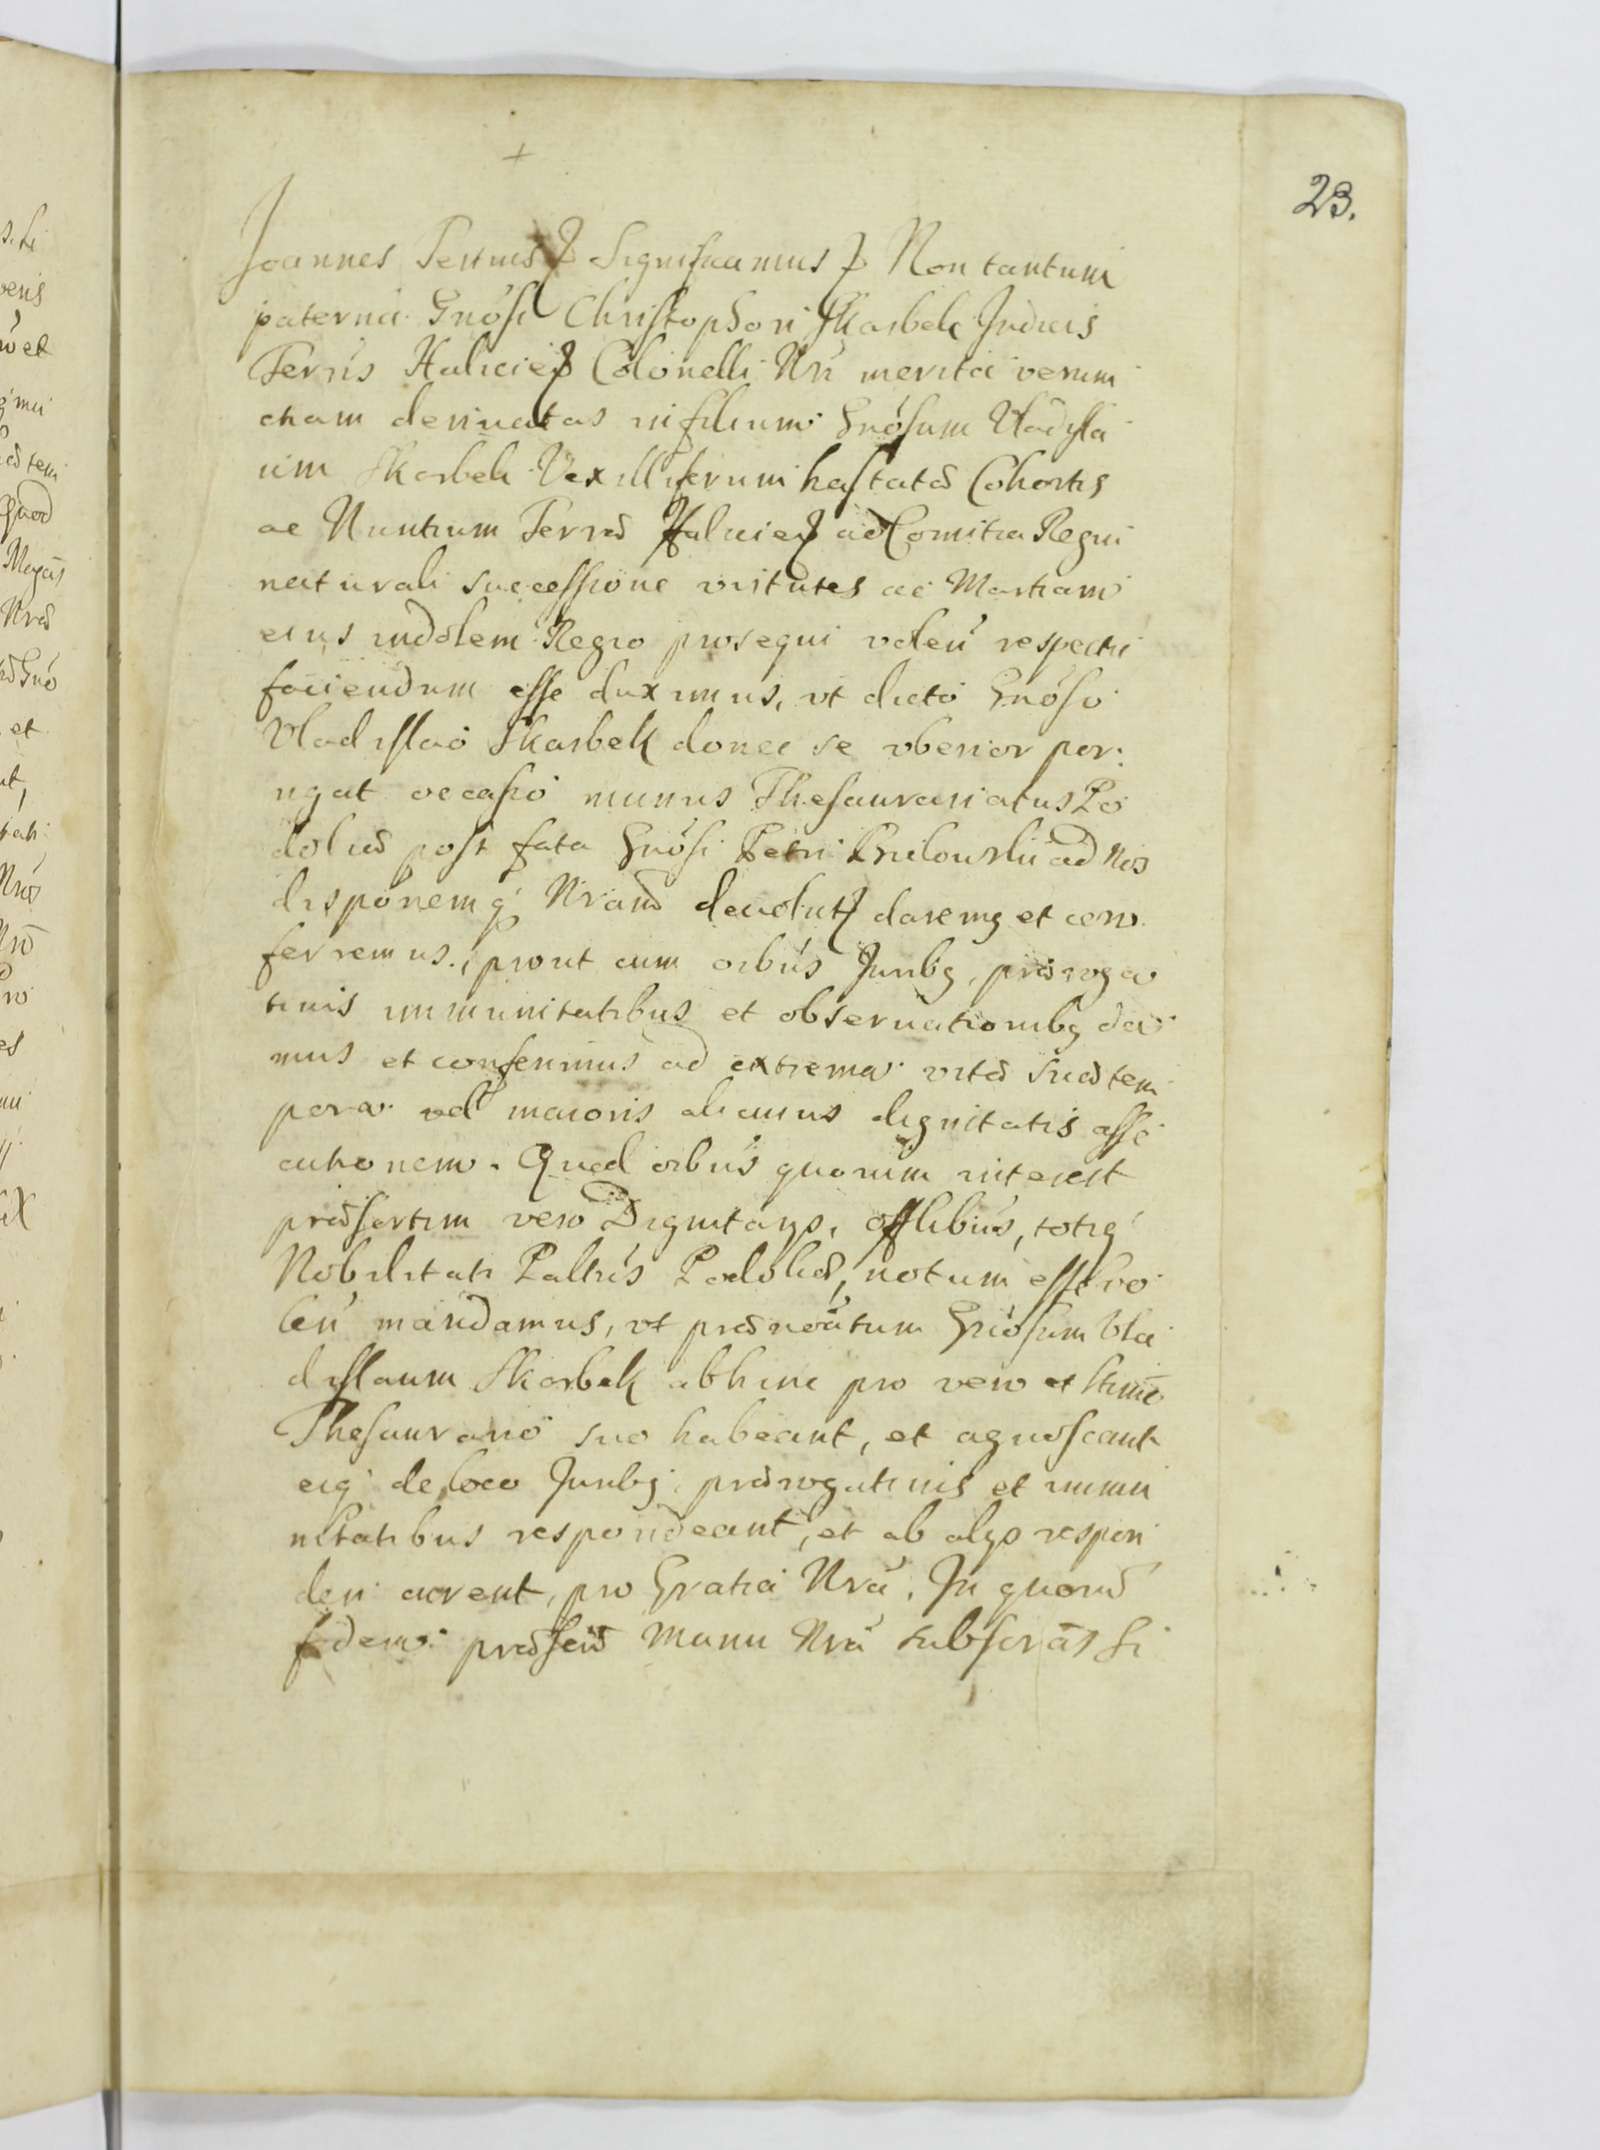 23.
Joannes Tertius Significamus Non tantum
paterna Gnosi Christophori Skarbek Judicis
Terris Halicien Colonelli Nri merita verum
etiam derivatas in filium Gnosum Vladisla
um Skarbek Vexilliferum hastatæ Cohortis
ac Nuntium Terræ Halicien ad Comitia Regni
naturali successione virtutes ac Martiam
eius indolem Regio prosequi volen respectu
faciendum esse duximus, vt dicto Gnoso
Vladislao Skarbek donec se vberior por:
rigat occasio munus Thesaurariatus Po
doliæ post fata Gnosi Petri ad Nos
disponemq Nram devolut daremg et con
ferremus, prout cum oibus Juribg, præroga
tiuis immunitatibus et obseruationibg da
mus et conferimus ad extrema vitæ suæ tem
pora vel maioris alicuius dignitatis asse
cutionem. Quod oibus quorum interest
præsertim vero Dignitarys, Offlibus, totiq
Nobilitati Paltus Podoliæ, notum esse vo
len mandamus, vt prænoatum Gnosum Vla
dislaum Skarbek abhinc pro vero et ltimo
Thesaurario suo habeant, et agnoscant
eiq de loco Juribg prærogatiuis et immu
nitatibus respondeant, et ab alys respon
deri curent, pro Gratia Nra. In quorū
fidem præsen Manu Nra subscras si